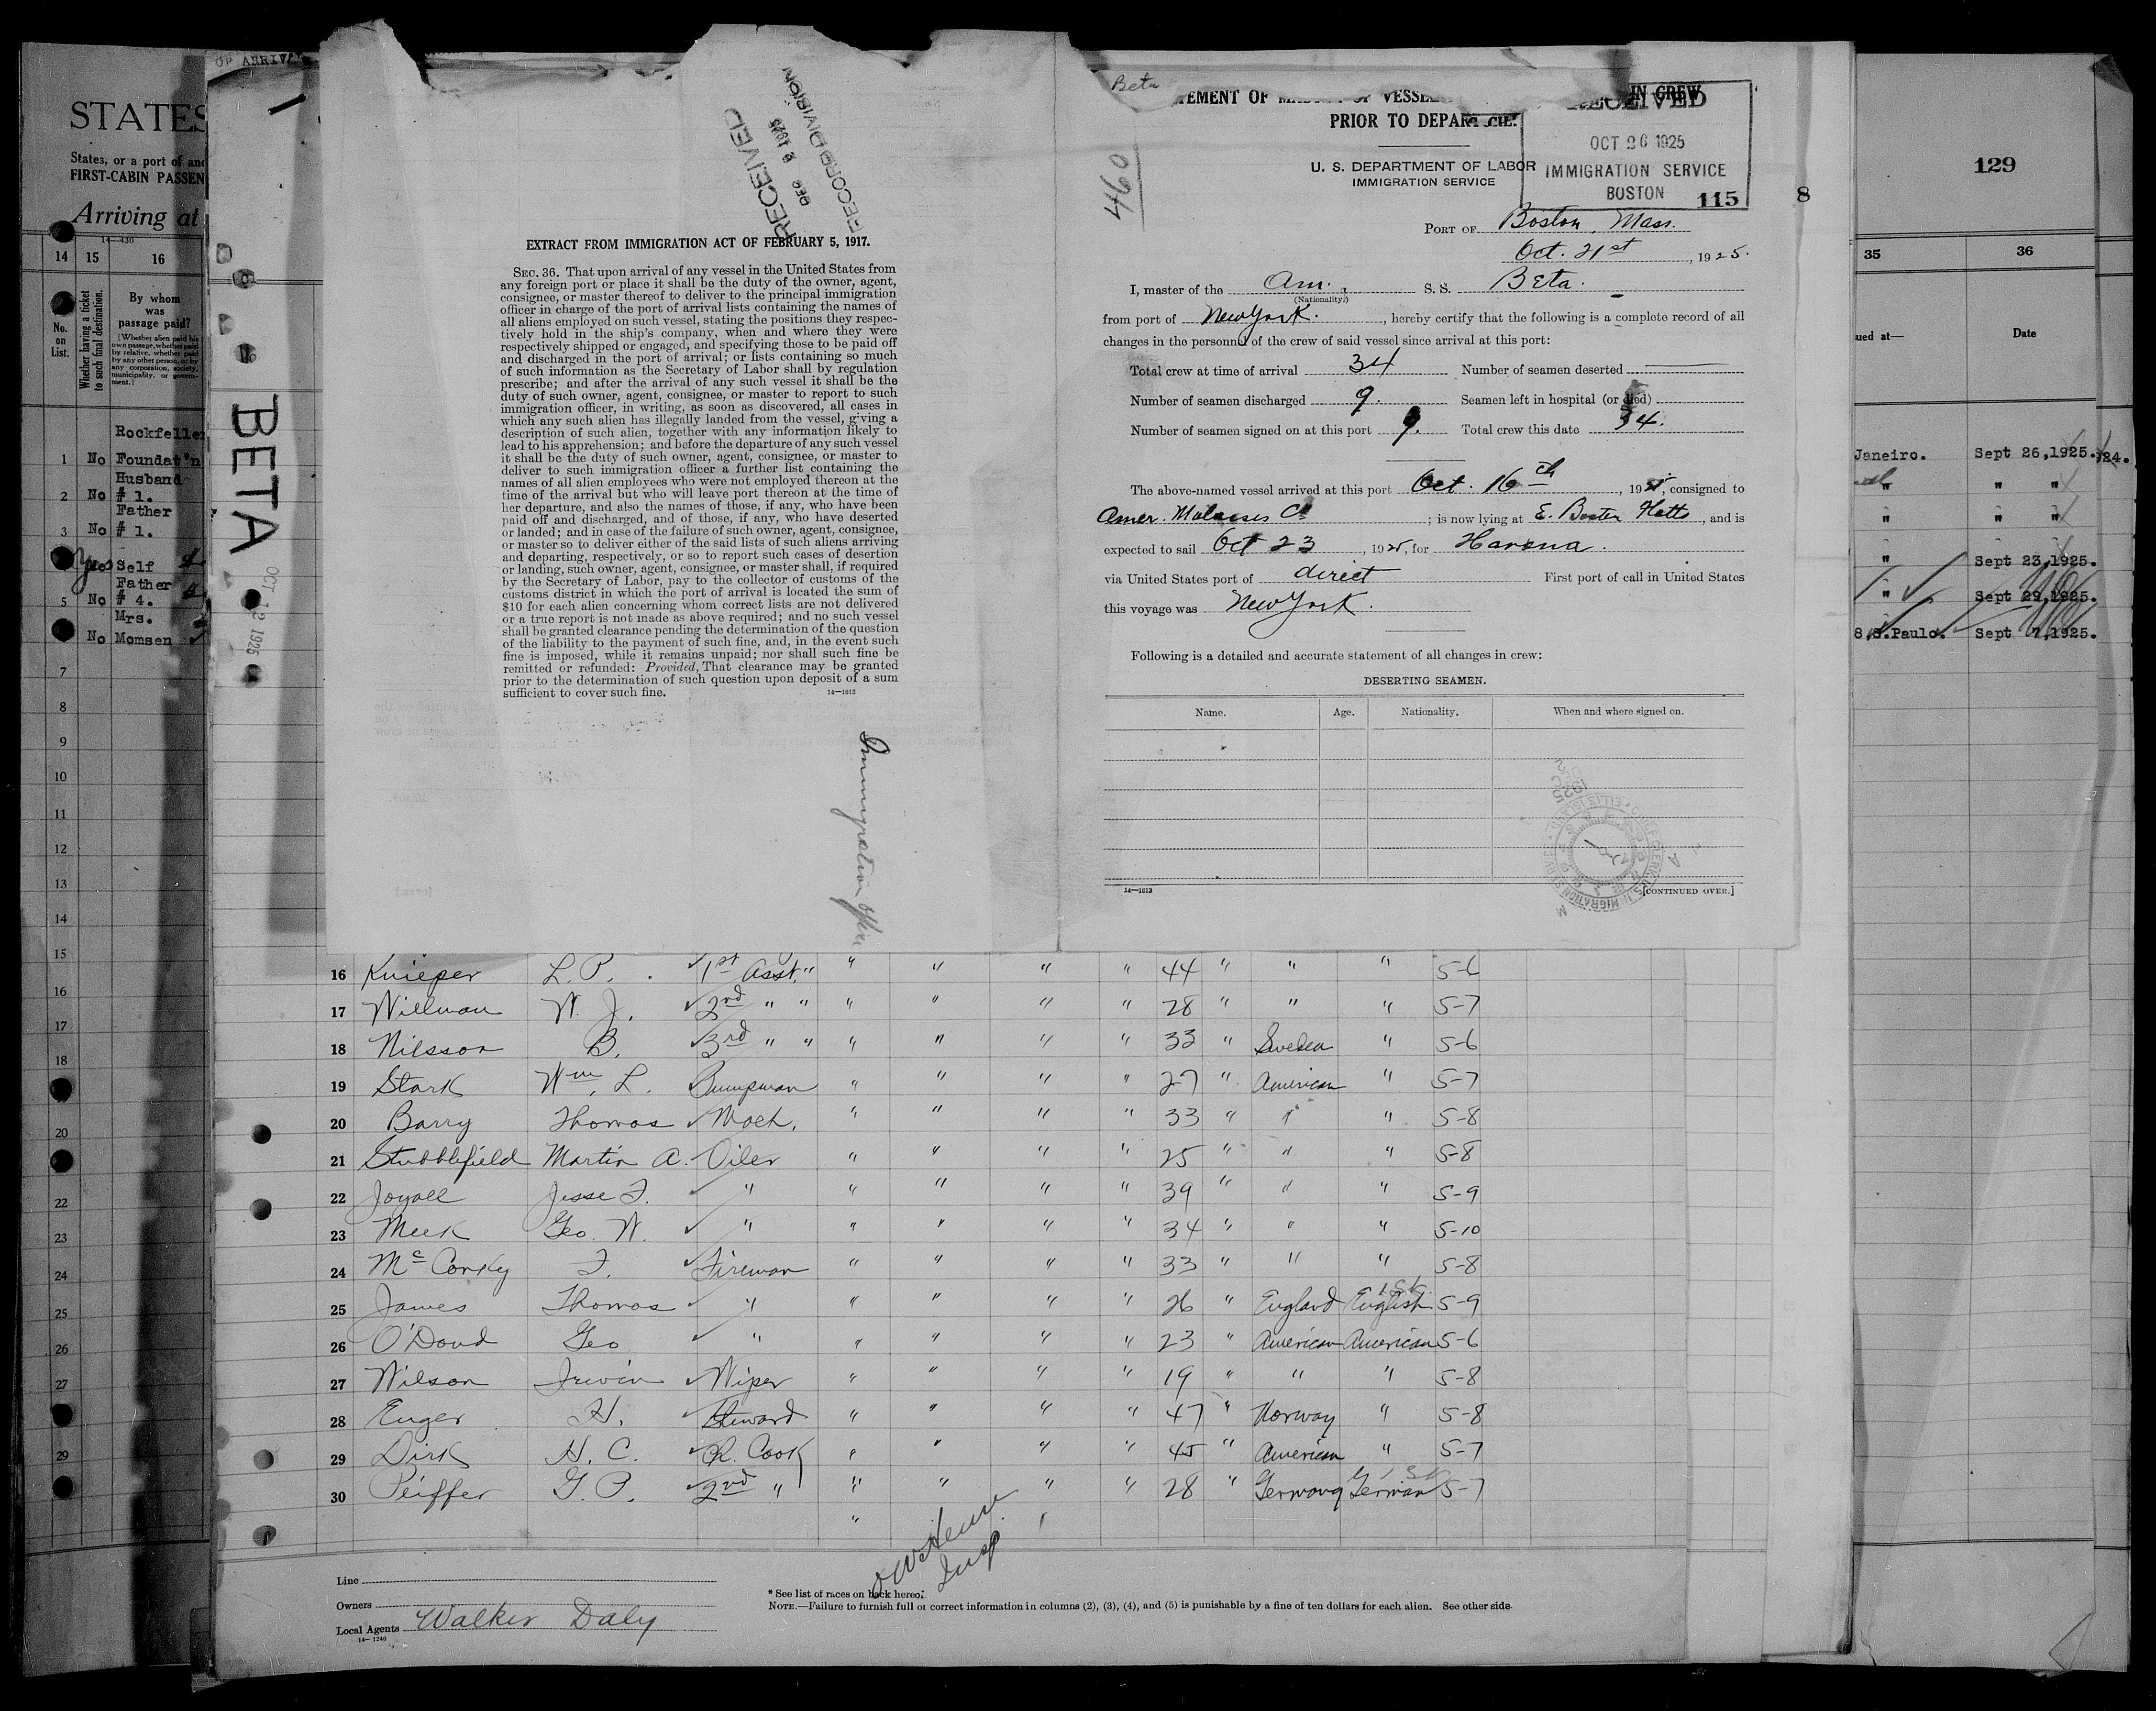 OF ARRIVAL
STATES
States, or a port of and
FIRST-CABIN PASSEN
Arriving at
14—430
14 15 16
No. on List.
Whether having a ticket to such final destination.
By whom was passage paid?
[Whether alien paid his own passage, whether paid by relative, whether paid by any other person, or by any corporation, society, municipality, or government.]
Rockfeller
1 No Foundat'n
Husband
2 No # 1.
Father
3 No # 1.
Yes Self
Father
5 No # 4.
Mrs.
No Momsen
7
8
9
10
11
12
13
14
15
16
17
18
20
22
23
24
25
26
27
29
BETA
OCT 12 1925
RECEIVED
DEC 9 1925
RECORD DIVISION
EXTRACT FROM IMMIGRATION ACT OF FEBRUARY 5, 1917.
SEC. 36. That upon arrival of any vessel in the United States from
any foreign port or place it shall be the duty of the owner, agent,
consignee, or master thereof to deliver to the principal immigration
officer in charge of the port of arrival lists containing the names of
all aliens employed on such vessel, stating the positions they respec-
tively hold in the ship's company, when and where they were
respectively shipped or engaged, and specifying those to be paid off
and discharged in the port of arrival; or lists containing so much
of such information as the Secretary of Labor shall by regulation
prescribe; and after the arrival of any such vessel it shall be the
duty of such owner, agent, consignee, or master to report to such
immigration officer, in writing, as soon as discovered, all cases in
which any such alien has illegally landed from the vessel, giving a
description of such alien, together with any information likely to
lead to his apprehension; and before the departure of any such vessel
it shall be the duty of such owner, agent, consignee, or master to
deliver to such immigration officer a further list containing the
names of all alien employees who were not employed thereon at the
time of the arrival but who will leave port thereon at the time of
her departure, and also the names of those, if any, who have been
paid off and discharged, and of those, if any, who have deserted
or landed; and in case of the failure of such owner, agent, consignee,
or master so to deliver either of the said lists of such aliens arriving
and departing, respectively, or so to report such cases of desertion
or landing, such owner, agent, consignee, or master, shall, if required
by the Secretary of Labor, pay to the collector of customs of the
customs district in which the port of arrival is located the sum of
$10 for each alien concerning whom correct lists are not delivered
or a true report is not made as above required; and no such vessel
shall be granted clearance pending the determination of the question
of the liability to the payment of such fine, and, in the event such
fine is imposed, while it remains unpaid; nor shall such fine be
remitted or refunded: Provided, That clearance may be granted
prior to the determination of such question upon deposit of a sum
sufficient to cover such fine. 14—1613
Immigration Office
Beta
460
TEMENT OF MASTER OF VESSEL IN CREW
PRIOR TO DEPARTURE.
U. S. DEPARTMENT OF LABOR
IMMIGRATION SERVICE
RECEIVED
OCT 26 1925
IMMIGRATION SERVICE
BOSTON
115
PORT OF Boston, Mass.
Oct. 21st, 1925.
I, master of the Am. S. S. Beta.
(Nationality.)
from port of New York., hereby certify that the following is a complete record of all
changes in the personnel of the crew of said vessel since arrival at this port:
Total crew at time of arrival 34 Number of seamen deserted —
Number of seamen discharged 9. Seamen left in hospital (or died)
Number of seamen signed on at this port 9. Total crew this date 34.
The above-named vessel arrived at this port Oct. 16th, 1925, consigned to
Amer. Molasses Co; is now lying at E. Boston Flatts, and is
expected to sail Oct 23, 1925, for Havana.
via United States port of direct First port of call in United States
this voyage was New York.
Following is a detailed and accurate statement of all changes in crew:
DESERTING SEAMEN.
Name. Age. Nationality. When and where signed on.
14—1613 [CONTINUED OVER.]
8
129
35 36
ued at— Date
Janeiro. Sept 26,1925. 924.
" " "
" " "
" Sept 23,1925.
" Sept 29,1925.
S.Paulo. Sept 7,1925.
16 Knieper L. P. 1st Asst. " " " " " 44 " " " 5-6
17 Willman W. J. 2nd " " " " " " 28 " " " 5-7
18 Nilsson B. 3rd " " " " " " 33 " Sweden " 5-6
19 Stark Wm. L. Pumpman " " " " 27 " American " 5-7
20 Barry Thomas Mach. " " " " 33 " " " 5-8
21 Stubblefield Martin A. Oiler " " " " 25 " " " 5-8
22 Joyall Jesse F. " " " " " 39 " " " 5-9
23 Meek Geo. W. " " " " " 34 " " " 5-10
24 McConky F. Fireman " " " " 33 " " " 5-8
25 James Thomas " " " " " 26 " England English 5-9
26 O'Doud Geo " " " " " 23 " American American 5-6
27 Wilson Irwin Wiper " " " " 19 " " " 5-8
28 Enger H. Steward " " " " 47 " Norway " 5-8
29 Dirk H. C. Ch. Cook " " " " 45 " American " 5-7
30 Peiffer G. P. 2nd " " " " " 28 " Germany German 5-7
Insp
Line
Owners
Local Agents Walker Daly
14—1240
* See list of races on back hereof.
NOTE.—Failure to furnish full or correct information in columns (2), (3), (4), and (5) is punishable by a fine of ten dollars for each alien. See other side